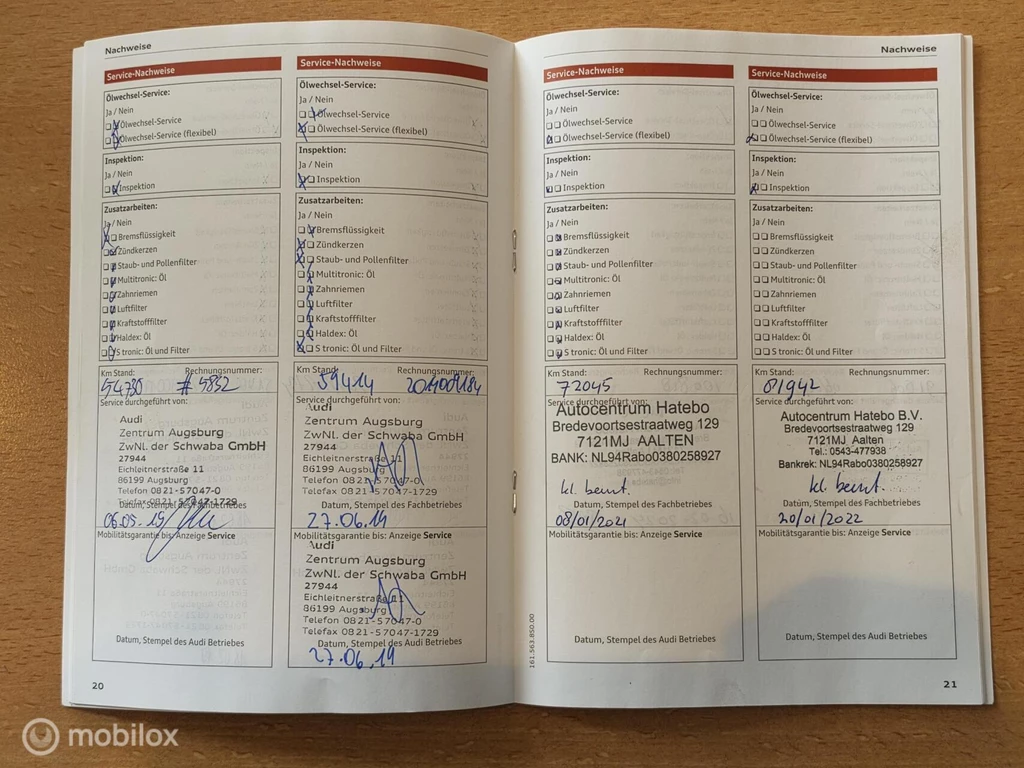 Nachweise
Service-Nachweise
Ölwechsel-Service:
Ja / Nein
Ölwechsel-Service
Ölwechsel-Service (flexibel)
Inspektion:
Ja / Nein
Inspektion
Zusatzarbeiten:
Ja / Nein
Bremsflüssigkeit
Zündkerzen
Staub- und Pollenfilter
Multitronic: Öl
Zahnriemen
Luftfilter
Kraftstofffilter
Haldex: Öl
S tronic: Öl und Filter
Km Stand: Rechnungsnummer:
54730 #5832
Service durchgeführt von:
Audi
Zentrum Augsburg
ZwNl. der Schwaba GmbH
27944
Eichleitnerstraße 11
86199 Augsburg
Telefon 0821-57047-0
Telefax 0821-57047-1729
Datum, Stempel des Fachbetriebes
Mobilitätsgarantie bis: Anzeige Service
Datum, Stempel des Audi Betriebes
20
Service-Nachweise
Ölwechsel-Service:
Ja / Nein
Ölwechsel-Service
Ölwechsel-Service (flexibel)
Inspektion:
Ja / Nein
Inspektion
Zusatzarbeiten:
Ja / Nein
Bremsflüssigkeit
Zündkerzen
Staub- und Pollenfilter
Multitronic: Öl
Zahnriemen
Luftfilter
Kraftstofffilter
Haldex: Öl
S tronic: Öl und Filter
Km Stand: Rechnungsnummer:
59414
Service durchgeführt von:
Audi
Zentrum Augsburg
ZwNl. der Schwaba GmbH
27944
Eichleitnerstraße 11
86199 Augsburg
Telefon 0821-57047-0
Telefax 0821-57047-1729
Datum, Stempel des Fachbetriebes
27.06.19
Mobilitätsgarantie bis: Anzeige Service
Audi
Zentrum Augsburg
ZwNl. der Schwaba GmbH
27944
Eichleitnerstraße 11
86199 Augsburg
Telefon 0821-57047-0
Telefax 0821-57047-1729
Datum, Stempel des Audi Betriebes
27.06.19
Nachweise
Service-Nachweise
Ölwechsel-Service:
Ja / Nein
Ölwechsel-Service
Ölwechsel-Service (flexibel)
Inspektion:
Ja / Nein
Inspektion
Zusatzarbeiten:
Ja / Nein
Bremsflüssigkeit
Zündkerzen
Staub- und Pollenfilter
Multitronic: Öl
Zahnriemen
Luftfilter
Kraftstofffilter
Haldex: Öl
S tronic: Öl und Filter
Km Stand: Rechnungsnummer:
72045
Service durchgeführt von:
Autocentrum Hatebo
Bredevoortsestraatweg 129
7121MJ AALTEN
BANK: NL94Rabo0380258927
kl. beurt.
Datum, Stempel des Fachbetriebes
08/01/2021
Mobilitätsgarantie bis: Anzeige Service
Datum, Stempel des Audi Betriebes
161.563.850.00
Service-Nachweise
Ölwechsel-Service:
Ja / Nein
Ölwechsel-Service
Ölwechsel-Service (flexibel)
Inspektion:
Ja / Nein
Inspektion
Zusatzarbeiten:
Ja / Nein
Bremsflüssigkeit
Zündkerzen
Staub- und Pollenfilter
Multitronic: Öl
Zahnriemen
Luftfilter
Kraftstofffilter
Haldex: Öl
S tronic: Öl und Filter
Km Stand: Rechnungsnummer:
81942
Service durchgeführt von:
Autocentrum Hatebo B.V.
Bredevoortsestraatweg 129
7121MJ Aalten
Tel.: 0543-477938
Bankrek: NL94Rabo0380258927
kl. beurt.
Datum, Stempel des Fachbetriebes
20/01/2022
Mobilitätsgarantie bis: Anzeige Service
Datum, Stempel des Audi Betriebes
21
mobilox